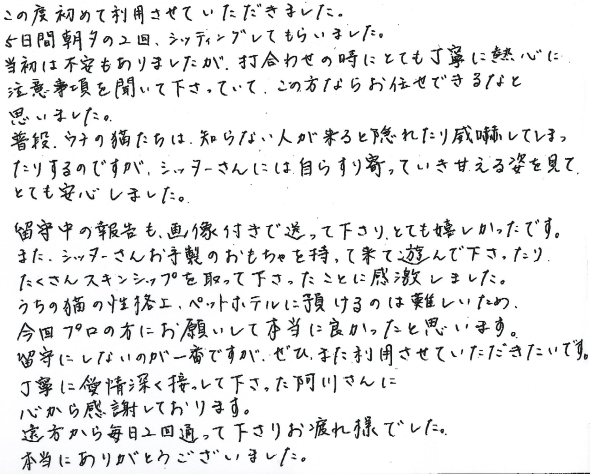 この度初めて利用させていただきました。
5日間朝夕の2回、シッティングしてもらいました。
当初は不安もありましたが、打合わせの時にとても丁寧に熱心に
注意事項を聞いて下さっていて、この方ならお任せできるなと
思いました。
普段、ウチの猫たちは、知らない人が来ると隠れたり威嚇してしまっ
たりするのですが、シッターさんには自らすり寄っていき甘える姿を見て、
とても安心しました。
留守中の報告も、画像付きで送って下さり、とても嬉しかったです。
また、シッターさんお手製のおもちゃを持って来て遊んで下さったり、
たくさんスキンシップを取って下さったことに感激しました。
うちの猫の性格上、ペットホテルに預けるのは難しいため、
今回プロの方にお願いして本当に良かったと思います。
留守にしないのが一番ですが、ぜひ、また利用させていただきたいです。
丁寧に愛情深く接して下さった阿川さんに
心から感謝しております。
遠方から毎日2回通って下さりお疲れ様でした。
本当にありがとうございました。